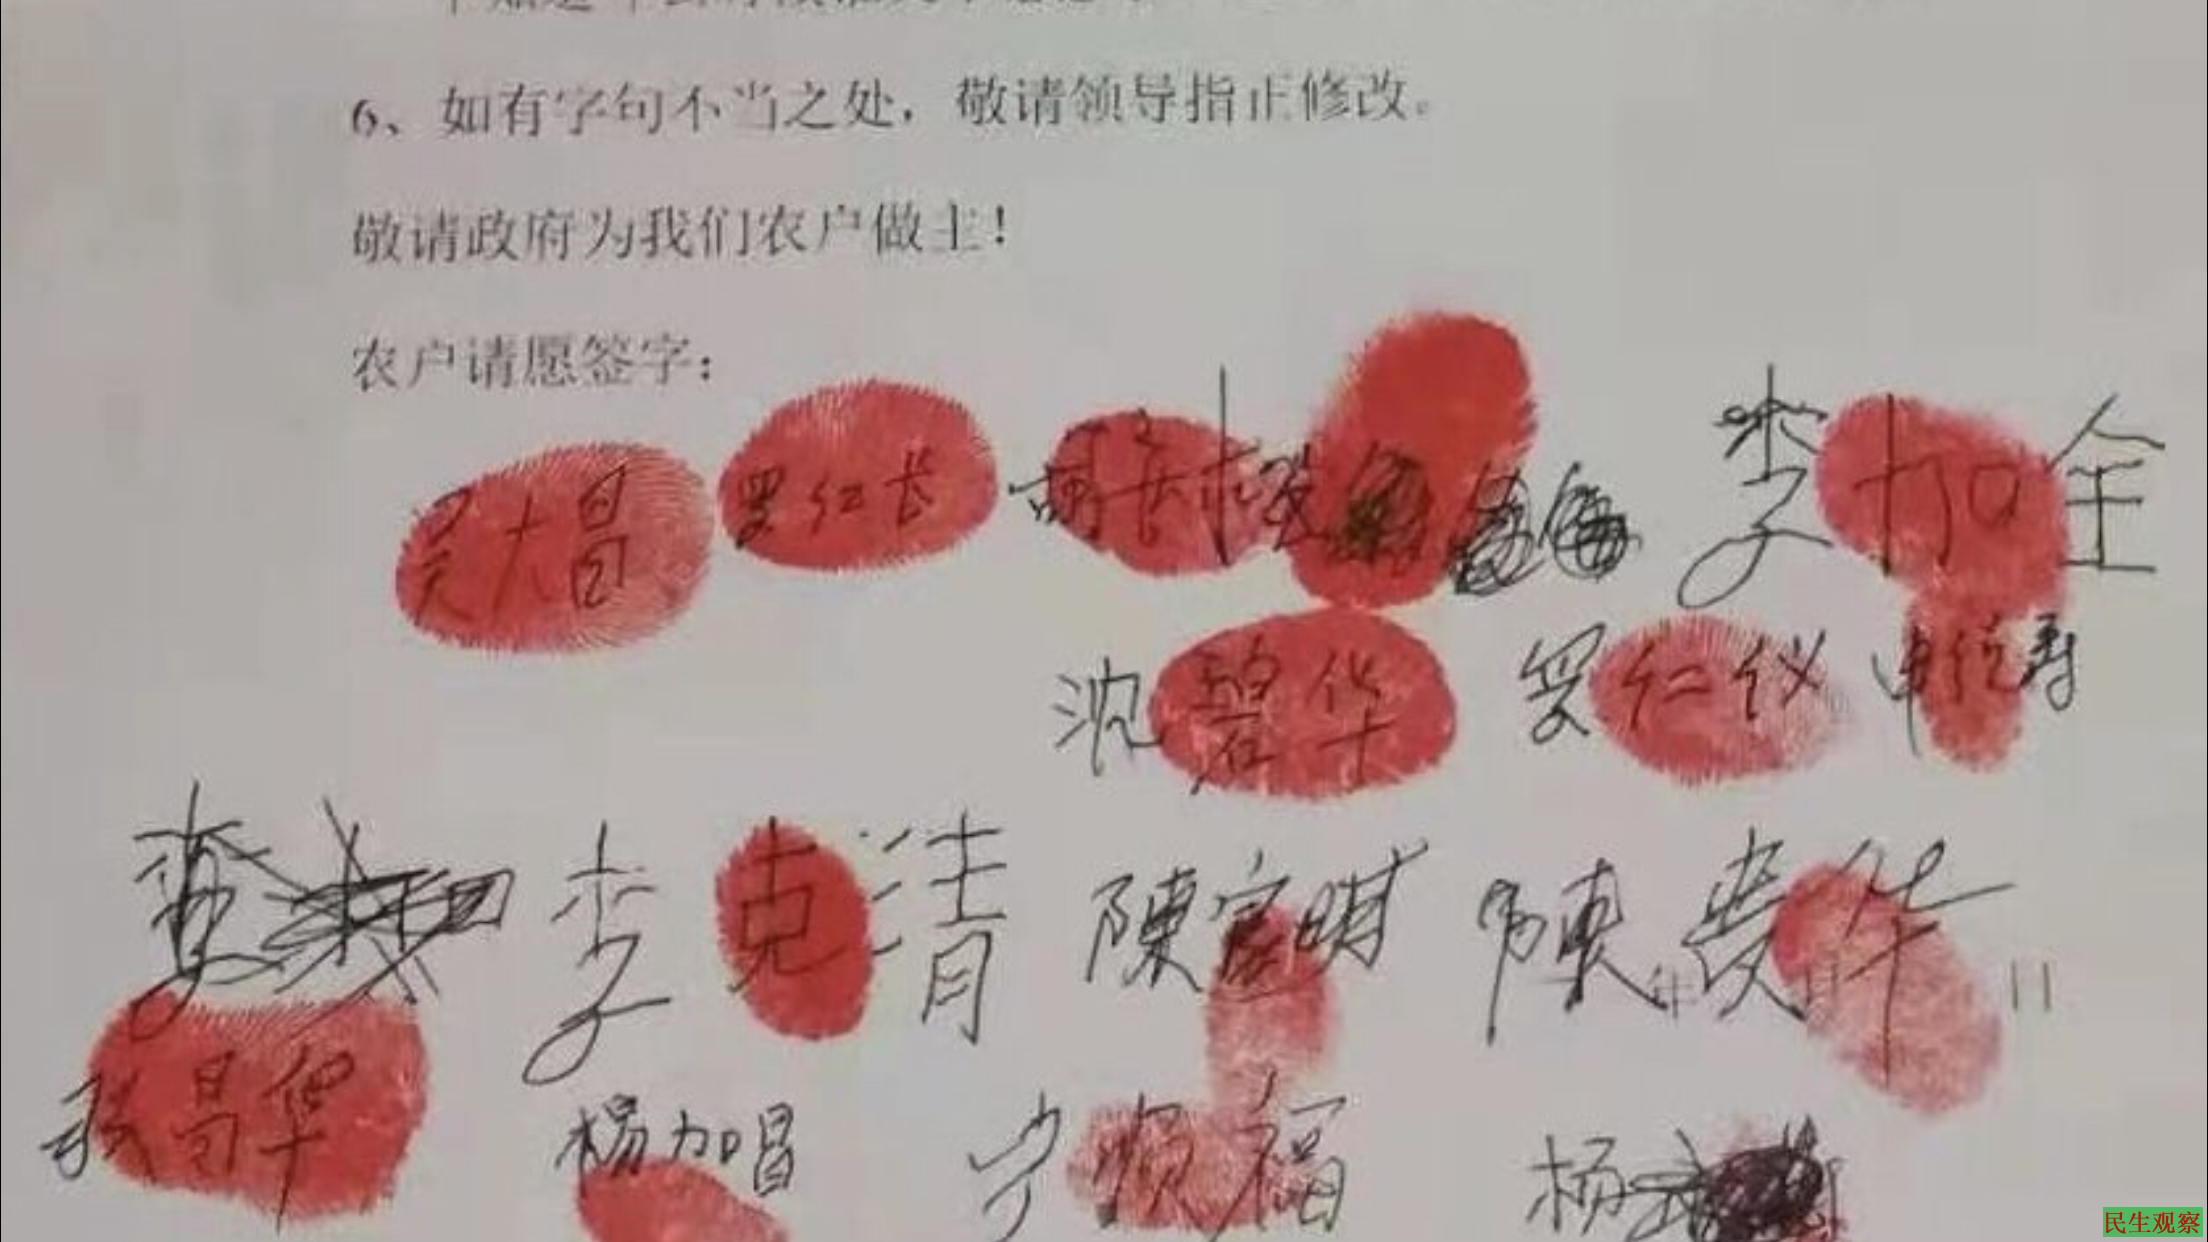 6、如有字句不当之处，敬请领导指正修改。
敬请政府为我们农户做主！
农户请愿签字：
吴大昌 罗红长 李加全
沈碧华 罗仁仪
李克清 陳富明 陳贵华
张昌华 杨加昌 宁顺福 杨
民生观察